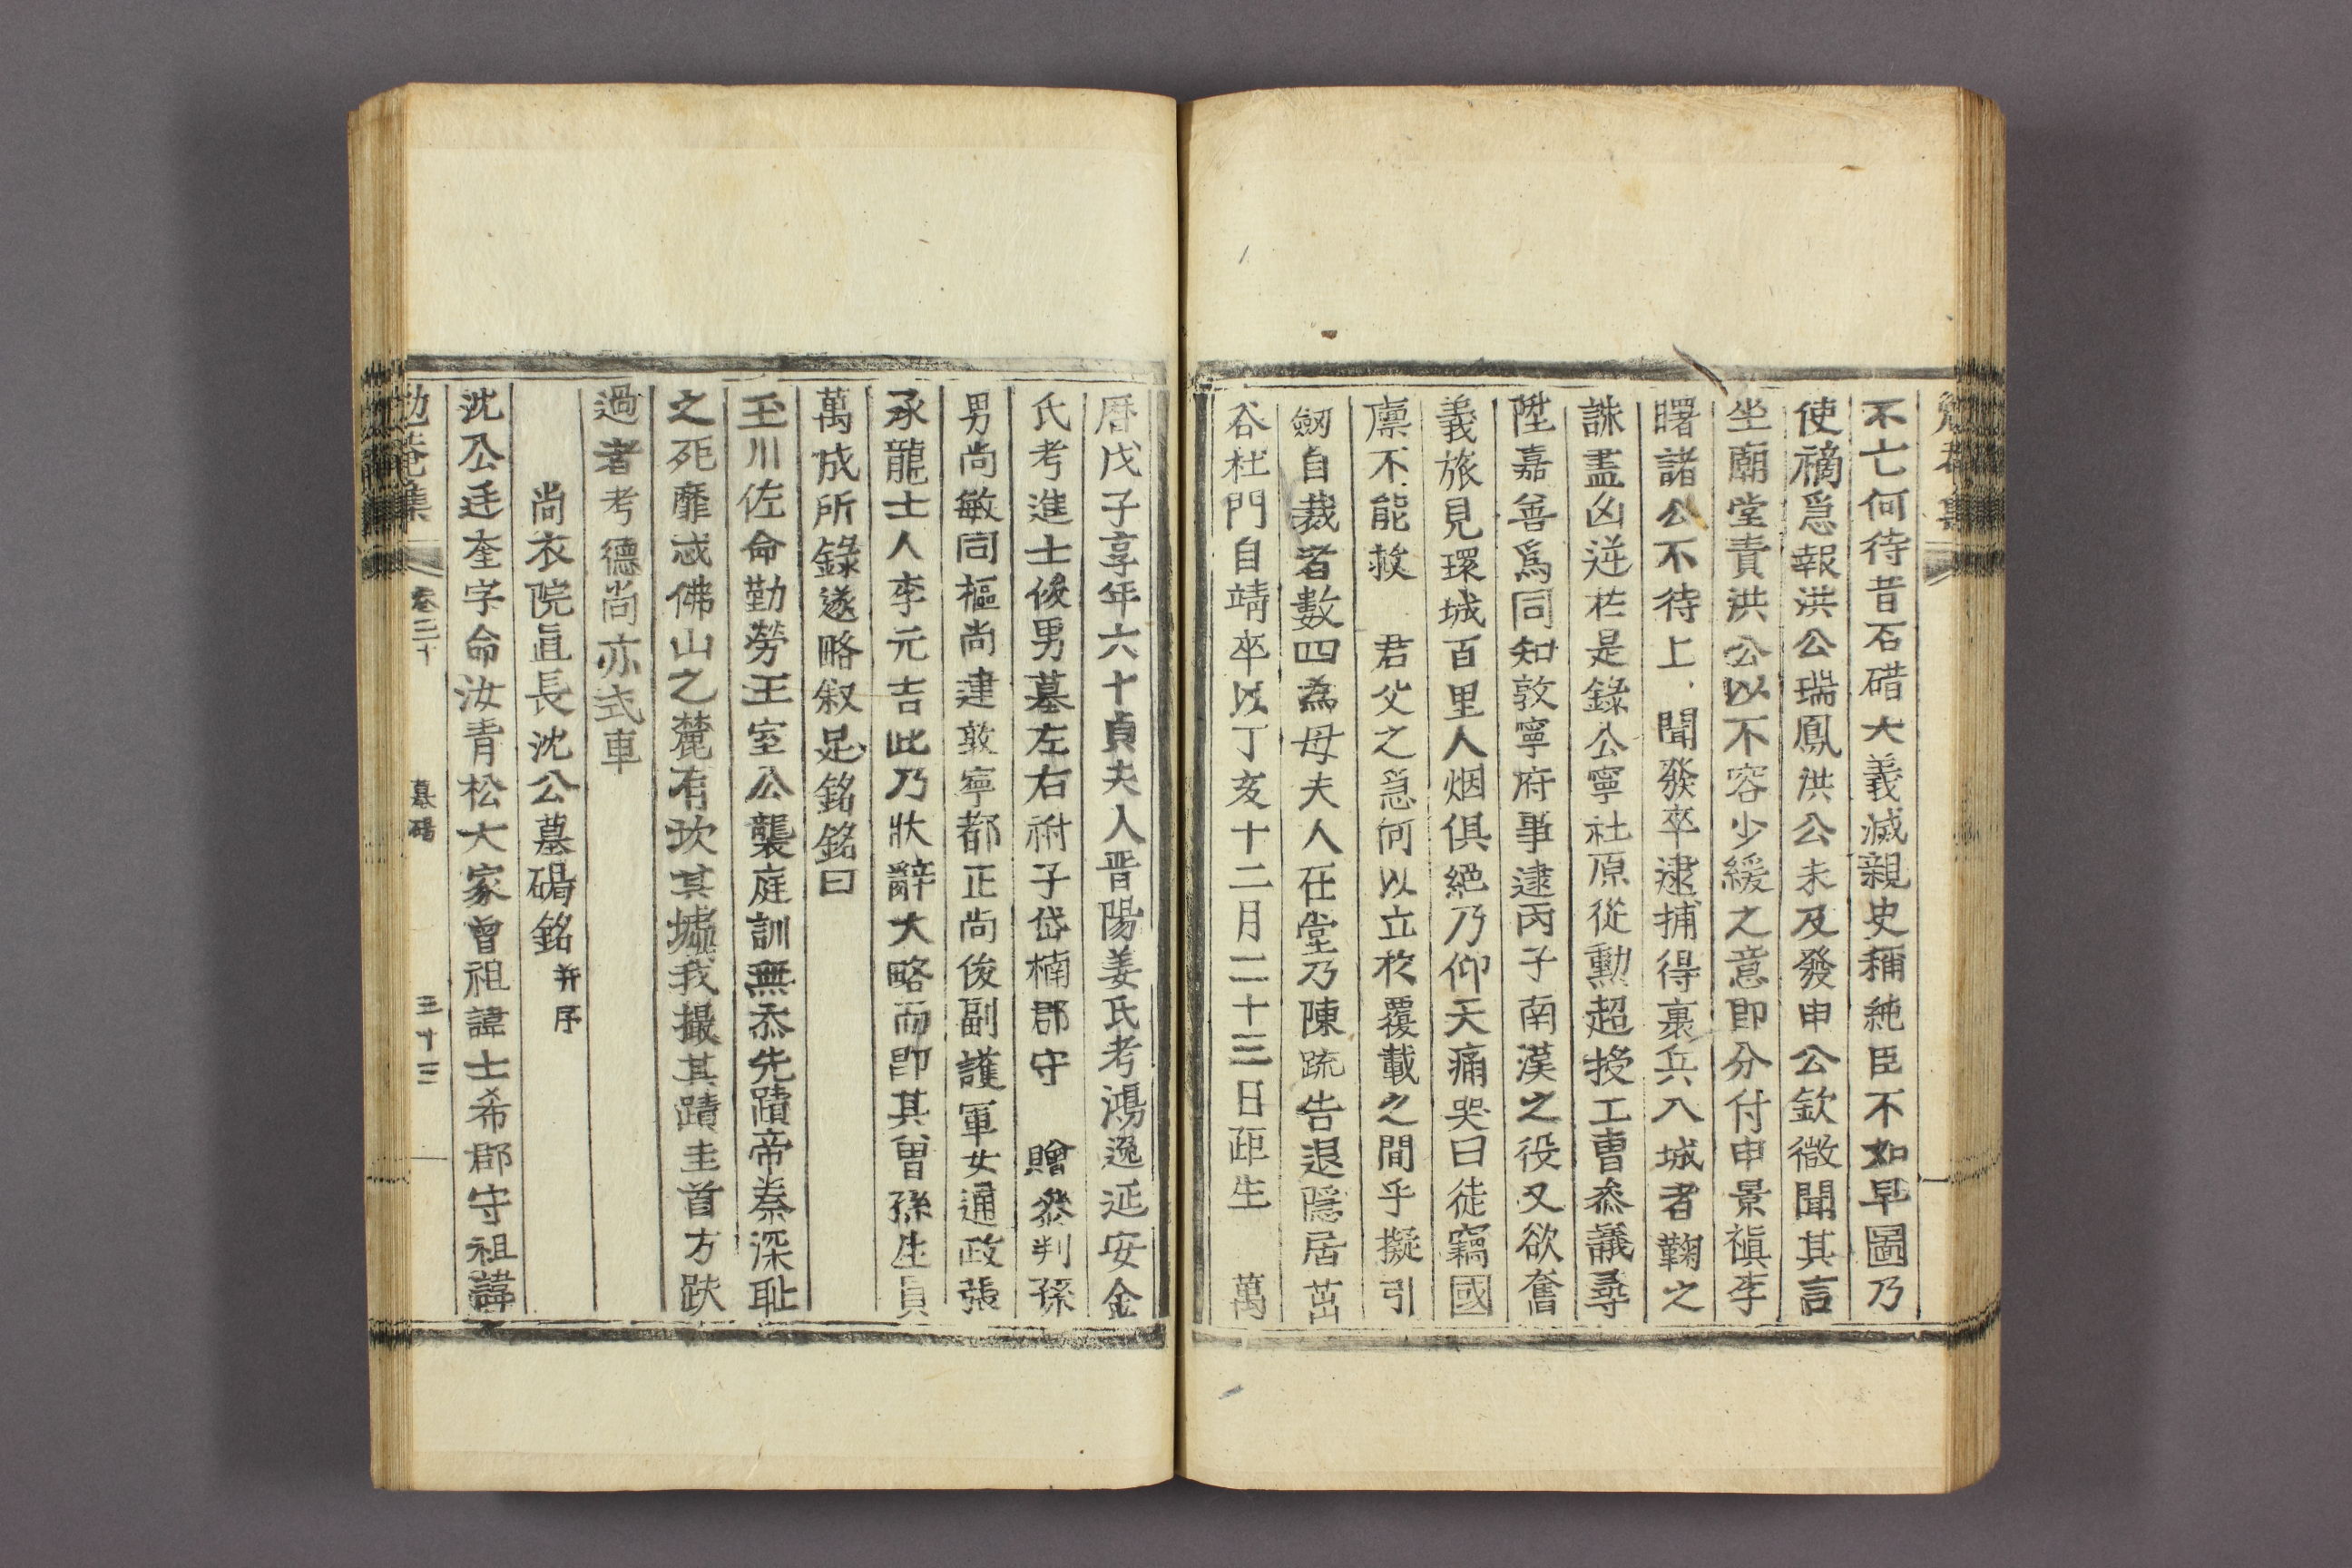 不亡何待昔石碏大義滅親史稱純臣不如早圖乃
使褵爲報洪公瑞鳳洪公未及發申公欽微聞其言
坐廟堂責洪公以不容少緩之意即分付申景禛李
曙諸公不待上聞發卒逮捕得裹兵入城者鞠之
誅盡凶逆於是錄公寧社原從勳超授工曹叅議尋
陞嘉善爲同知敦寧府事逮丙子南漢之役又欲奮
義旅見環城百里人烟俱絕乃仰天痛哭曰徒竊國
廪不能救　君父之急何以立於覆載之間乎擬引
劒自裁者數四為母夫人在堂乃陳疏告退隱居茁
谷杜門自靖卒以丁亥十二月二十三日距生　萬
曆戊子享年六十貞夫人晋陽姜氏考鴻逸延安金
氏考進士俊男墓左右祔子岱楠郡守　贈叅判孫
男尚敏同樞尚建敦寧都正尚俊副護軍女通政張
承龍士人李元吉此乃狀辭大略而卽其曾孫生員
萬成所錄遂略叙足銘銘曰
玉川佐命勤勞王室公襲庭訓無忝先蹟帝秦深耻
之死靡忒佛山之麓有坎其墟我撮其蹟圭首方趺
過者考德尚亦式車
尚衣院直長沈公墓碣銘 并序
沈公廷奎字命汝青松大家曾祖諱士希郡守祖諱
勉菴集 卷三十 墓碣 三十三